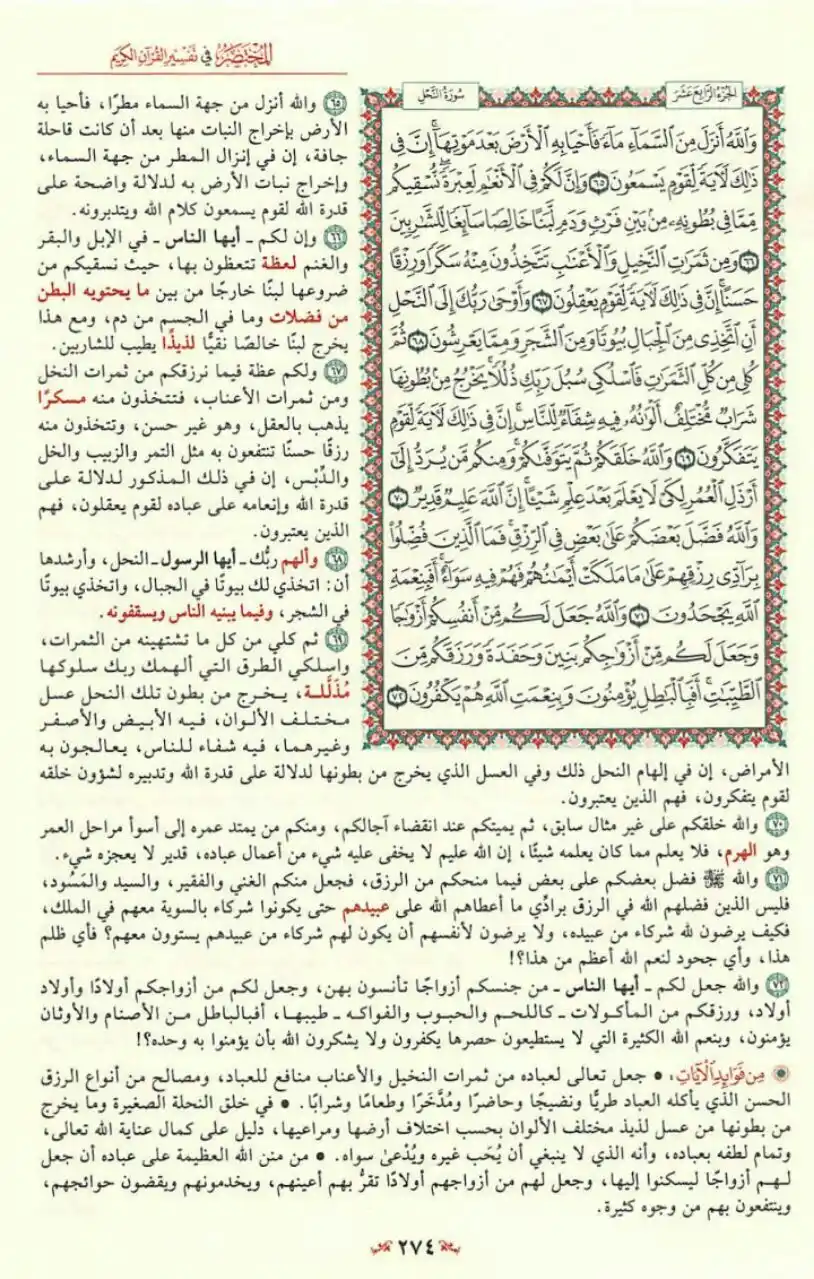 المختصر في تفسير القرآن الكريم
الجزء الرابع عشر
سورة النحل
وَاللَّهُ أَنزَلَ مِنَ السَّمَاءِ مَاءً فَأَحْيَا بِهِ الْأَرْضَ بَعْدَ مَوْتِهَا ۚ إِنَّ فِي
ذَٰلِكَ لَآيَةً لِّقَوْمٍ يَسْمَعُونَ ٦٥ وَإِنَّ لَكُمْ فِي الْأَنْعَامِ لَعِبْرَةً ۖ نُّسْقِيكُم
مِّمَّا فِي بُطُونِهِ مِن بَيْنِ فَرْثٍ وَدَمٍ لَّبَنًا خَالِصًا سَائِغًا لِّلشَّارِبِينَ
٦٦ وَمِن ثَمَرَاتِ النَّخِيلِ وَالْأَعْنَابِ تَتَّخِذُونَ مِنْهُ سَكَرًا وَرِزْقًا
حَسَنًا ۗ إِنَّ فِي ذَٰلِكَ لَآيَةً لِّقَوْمٍ يَعْقِلُونَ ٦٧ وَأَوْحَىٰ رَبُّكَ إِلَى النَّحْلِ
أَنِ اتَّخِذِي مِنَ الْجِبَالِ بُيُوتًا وَمِنَ الشَّجَرِ وَمِمَّا يَعْرِشُونَ ٦٨ ثُمَّ
كُلِي مِن كُلِّ الثَّمَرَاتِ فَاسْلُكِي سُبُلَ رَبِّكِ ذُلُلًا ۚ يَخْرُجُ مِن بُطُونِهَا
شَرَابٌ مُّخْتَلِفٌ أَلْوَانُهُ فِيهِ شِفَاءٌ لِّلنَّاسِ ۗ إِنَّ فِي ذَٰلِكَ لَآيَةً لِّقَوْمٍ
يَتَفَكَّرُونَ ٦٩ وَاللَّهُ خَلَقَكُمْ ثُمَّ يَتَوَفَّاكُمْ ۚ وَمِنكُم مَّن يُرَدُّ إِلَىٰ
أَرْذَلِ الْعُمُرِ لِكَيْ لَا يَعْلَمَ بَعْدَ عِلْمٍ شَيْئًا ۚ إِنَّ اللَّهَ عَلِيمٌ قَدِيرٌ ٧٠
وَاللَّهُ فَضَّلَ بَعْضَكُمْ عَلَىٰ بَعْضٍ فِي الرِّزْقِ ۚ فَمَا الَّذِينَ فُضِّلُوا
بِرَادِّي رِزْقِهِمْ عَلَىٰ مَا مَلَكَتْ أَيْمَانُهُمْ فَهُمْ فِيهِ سَوَاءٌ ۚ أَفَبِنِعْمَةِ
اللَّهِ يَجْحَدُونَ ٧١ وَاللَّهُ جَعَلَ لَكُم مِّنْ أَنفُسِكُمْ أَزْوَاجًا
وَجَعَلَ لَكُم مِّنْ أَزْوَاجِكُم بَنِينَ وَحَفَدَةً وَرَزَقَكُم مِّنَ
الطَّيِّبَاتِ ۚ أَفَبِالْبَاطِلِ يُؤْمِنُونَ وَبِنِعْمَتِ اللَّهِ هُمْ يَكْفُرُونَ ٧٢
٦٥ والله أنزل من جهة السماء مطرًا، فأحيا به
الأرض بإخراج النبات منها بعد أن كانت قاحلة
جافة، إن في إنزال المطر من جهة السماء،
وإخراج نبات الأرض به لدلالة واضحة على
قدرة الله لقوم يسمعون كلام الله ويتدبرونه.
٦٦ وإن لكم ـ أيها الناس ـ في الإبل والبقر
والغنم لعظة تتعظون بها، حيث نسقيكم من
ضروعها لبنًا خارجًا من بين ما يحتويه البطن
من فضلات وما في الجسم من دم، ومع هذا
يخرج لبنًا خالصًا نقيًّا لذيذًا يطيب للشاربين.
٦٧ ولكم عظة فيما نرزقكم من ثمرات النخل
ومن ثمرات الأعناب، فتتخذون منه مسكرًا
يذهب بالعقل، وهو غير حسن، وتتخذون منه
رزقًا حسنًا تنتفعون به مثل التمر والزبيب والخل
والدِّبْس، إن في ذلك المذكور لدلالة على
قدرة الله وإنعامه على عباده لقوم يعقلون، فهم
الذين يعتبرون.
٦٨ وألهم ربُّك ـ أيها الرسول ـ النحل، وأرشدها
أن: اتخذي لك بيوتًا في الجبال، واتخذي بيوتًا
في الشجر، وفيما يبنيه الناس ويسقفونه.
٦٩ ثم كلي من كل ما تشتهينه من الثمرات،
واسلكي الطرق التي ألهمك ربك سلوكها
مُذَلَّلة، يخرج من بطون تلك النحل عسل
مختلف الألوان، فيه الأبيض والأصفر
وغيرهما، فيه شفاء للناس، يعالجون به
الأمراض، إن في إلهام النحل ذلك وفي العسل الذي يخرج من بطونها لدلالة على قدرة الله وتدبيره لشؤون خلقه
لقوم يتفكرون، فهم الذين يعتبرون.
٧٠ والله خلقكم على غير مثال سابق، ثم يميتكم عند انقضاء آجالكم، ومنكم من يمتد عمره إلى أسوأ مراحل العمر
وهو الهرم، فلا يعلم مما كان يعلمه شيئًا، إن الله عليم لا يخفى عليه شيء من أعمال عباده، قدير لا يعجزه شيء.
٧١ والله ﷻ فضل بعضكم على بعض فيما منحكم من الرزق، فجعل منكم الغني والفقير، والسيد والمَسُود،
فليس الذين فضلهم الله في الرزق برادِّي ما أعطاهم الله على عبيدهم حتى يكونوا شركاء بالسوية معهم في الملك،
فكيف يرضون لله شركاء من عبيده، ولا يرضون لأنفسهم أن يكون لهم شركاء من عبيدهم يستوون معهم؟ فأي ظلم
هذا، وأي جحود لنعم الله أعظم من هذا؟!
٧٢ والله جعل لكم ـ أيها الناس ـ من جنسكم أزواجًا تأنسون بهن، وجعل لكم من أزواجكم أولادًا وأولاد
أولاد، ورزقكم من المأكولات ـ كاللحم والحبوب والفواكه ـ طيبها، أفبالباطل من الأصنام والأوثان
يؤمنون، وبنعم الله الكثيرة التي لا يستطيعون حصرها يكفرون ولا يشكرون الله بأن يؤمنوا به وحده؟!
من فوائد الآيات: • جعل تعالى لعباده من ثمرات النخيل والأعناب منافع للعباد، ومصالح من أنواع الرزق
الحسن الذي يأكله العباد طريًّا ونضيجًا وحاضرًا ومُدَّخَرًا وطعامًا وشرابًا. • في خلق النحلة الصغيرة وما يخرج
من بطونها من عسل لذيذ مختلف الألوان بحسب اختلاف أرضها ومراعيها، دليل على كمال عناية الله تعالى،
وتمام لطفه بعباده، وأنه الذي لا ينبغي أن يُحَب غيره ويُدْعىٰ سواه. • من منن الله العظيمة على عباده أن جعل
لهم أزواجًا ليسكنوا إليها، وجعل لهم من أزواجهم أولادًا تقرُّ بهم أعينهم، ويخدمونهم ويقضون حوائجهم،
وينتفعون بهم من وجوه كثيرة.
٢٧٤